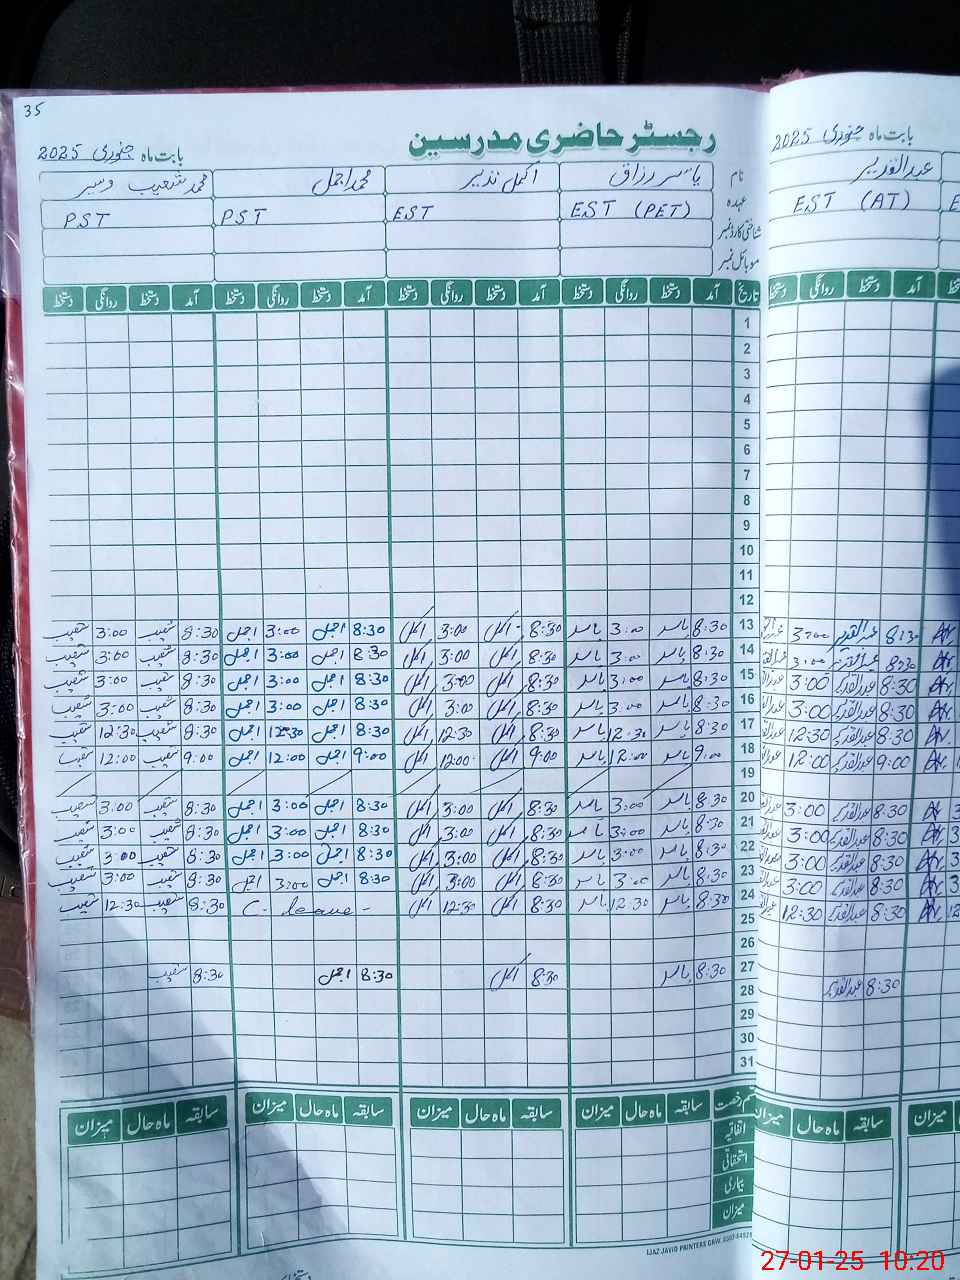 35
رجسٹر حاضری مدرسین
بابت ماہ جنوری 2025
بابت ماہ جنوری 2025
نام یاسر رزاق اکمل نذیر محمد اجمل محمد شعیب وسیر
عبدالقدیر
عہدہ EST (PET) EST PST PST
EST (AT)
شناختی کارڈ نمبر
موبائل نمبر
تاریخ آمد دستخط روانگی دستخط آمد دستخط روانگی دستخط آمد دستخط روانگی دستخط آمد دستخط روانگی دستخط
آمد دستخط روانگی دستخط
1
2
3
4
5
6
7
8
9
10
11
12
13 8:30 یاسر 3:00 یاسر 8:30 اکمل 3:00 اکمل 8:30 اجمل 3:00 اجمل 8:30 شعیب 3:00 شعیب
8:30 عبدالقدیر 3:00
14 8:30 یاسر 3:00 یاسر 8:30 اکمل 3:00 اکمل 8:30 اجمل 3:00 اجمل 8:30 شعیب 3:00 شعیب
8:30 عبدالقدیر 3:00
15 8:30 یاسر 3:00 یاسر 8:30 اکمل 3:00 اکمل 8:30 اجمل 3:00 اجمل 8:30 شعیب 3:00 شعیب
8:30 عبدالقدیر 3:00
16 8:30 یاسر 3:00 یاسر 8:30 اکمل 3:00 اکمل 8:30 اجمل 3:00 اجمل 8:30 شعیب 3:00 شعیب
8:30 عبدالقدیر 3:00
17 8:30 یاسر 12:30 یاسر 8:30 اکمل 12:30 اکمل 8:30 اجمل 12:30 اجمل 8:30 شعیب 12:30 شعیب
8:30 عبدالقدیر 12:30
18 9:00 یاسر 12:00 یاسر 9:00 اکمل 12:00 اکمل 9:00 اجمل 12:00 اجمل 9:00 شعیب 12:00 شعیب
9:00 عبدالقدیر 12:00
19
20 8:30 یاسر 3:00 یاسر 8:30 اکمل 3:00 اکمل 8:30 اجمل 3:00 اجمل 8:30 شعیب 3:00 شعیب
8:30 عبدالقدیر 3:00
21 8:30 یاسر 3:00 یاسر 8:30 اکمل 3:00 اکمل 8:30 اجمل 3:00 اجمل 8:30 شعیب 3:00 شعیب
8:30 عبدالقدیر 3:00
22 8:30 یاسر 3:00 یاسر 8:30 اکمل 3:00 اکمل 8:30 اجمل 3:00 اجمل 8:30 شعیب 3:00 شعیب
8:30 عبدالقدیر 3:00
23 8:30 یاسر 3:00 یاسر 8:30 اکمل 3:00 اکمل 8:30 اجمل 3:00 اجمل 8:30 شعیب 3:00 شعیب
8:30 عبدالقدیر 3:00
24 8:30 یاسر 12:30 یاسر 8:30 اکمل 12:30 اکمل C- leave - 8:30 شعیب 12:30 شعیب
8:30 عبدالقدیر 12:30
25
26
27 8:30 یاسر 8:30 اکمل 8:30 اجمل 8:30 شعیب
8:30 عبدالقدیر
28
29
30
31
قسم رخصت سابقہ ماہ حال میزان سابقہ ماہ حال میزان سابقہ ماہ حال میزان سابقہ ماہ حال میزان
سابقہ ماہ حال میزان
اتفاقیہ
استحقاقی
بیماری
میزان
IJAZ JAVID PRINTERS GRW.
27-01-25 10:20